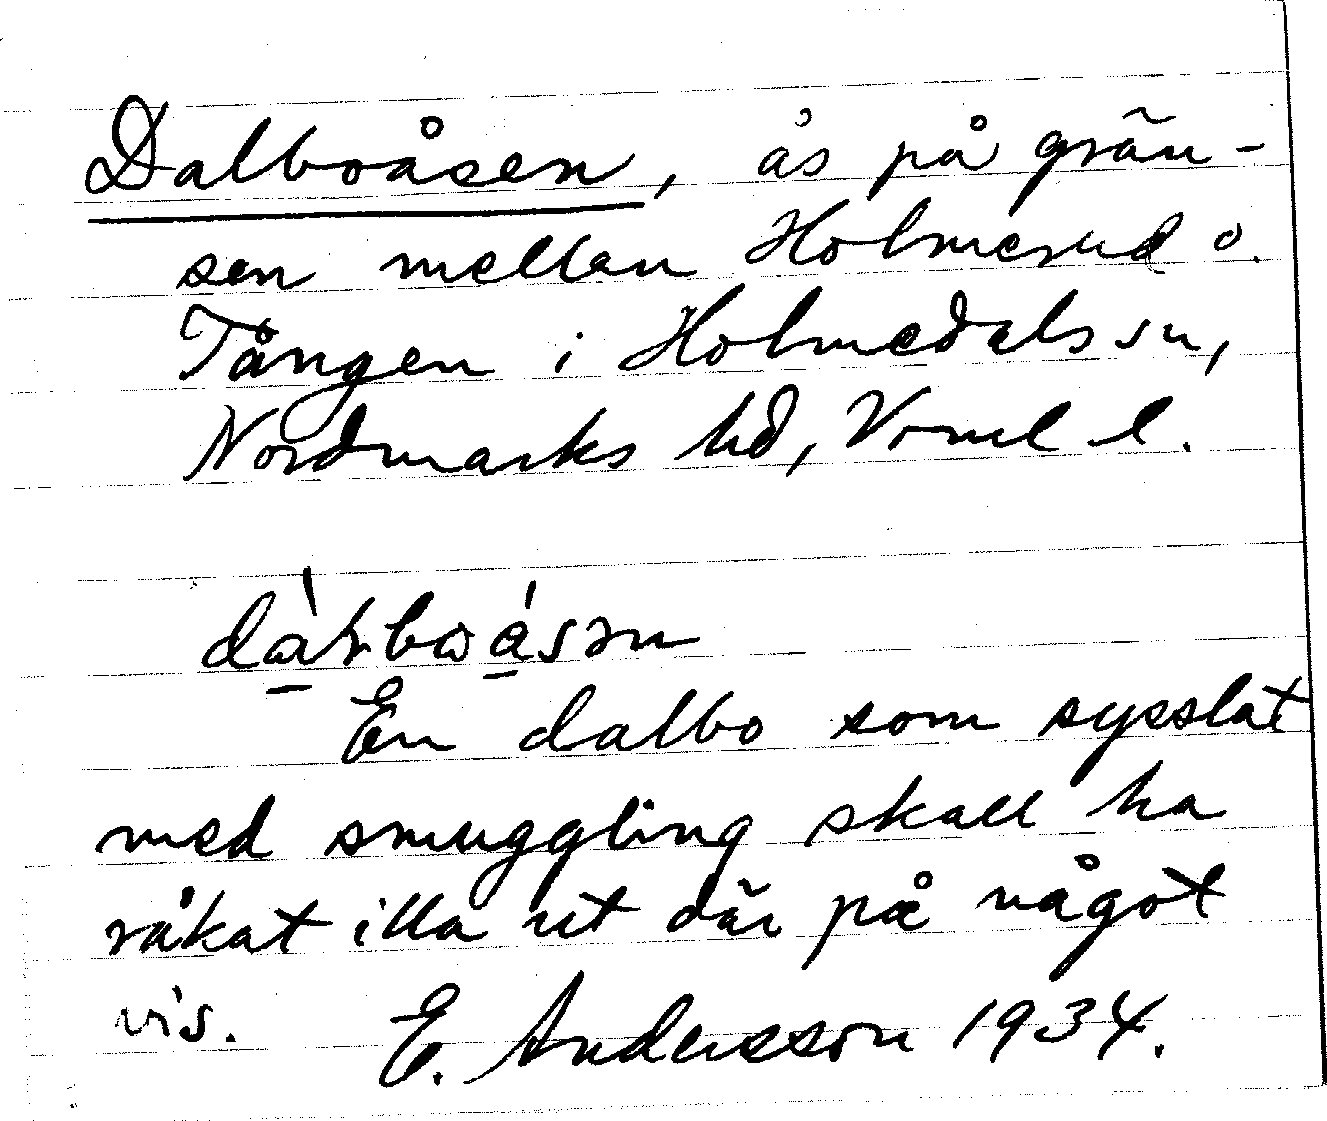 Dalboåsen, ås på grän-
sen mellan Holmerud o.
Tången i Holmedals sn,
Nordmarks hd, Vrml l.
En dalbo som sysslat
med smuggling skall ha
råkat illa ut där på något
vis. E. Andersson 1934.